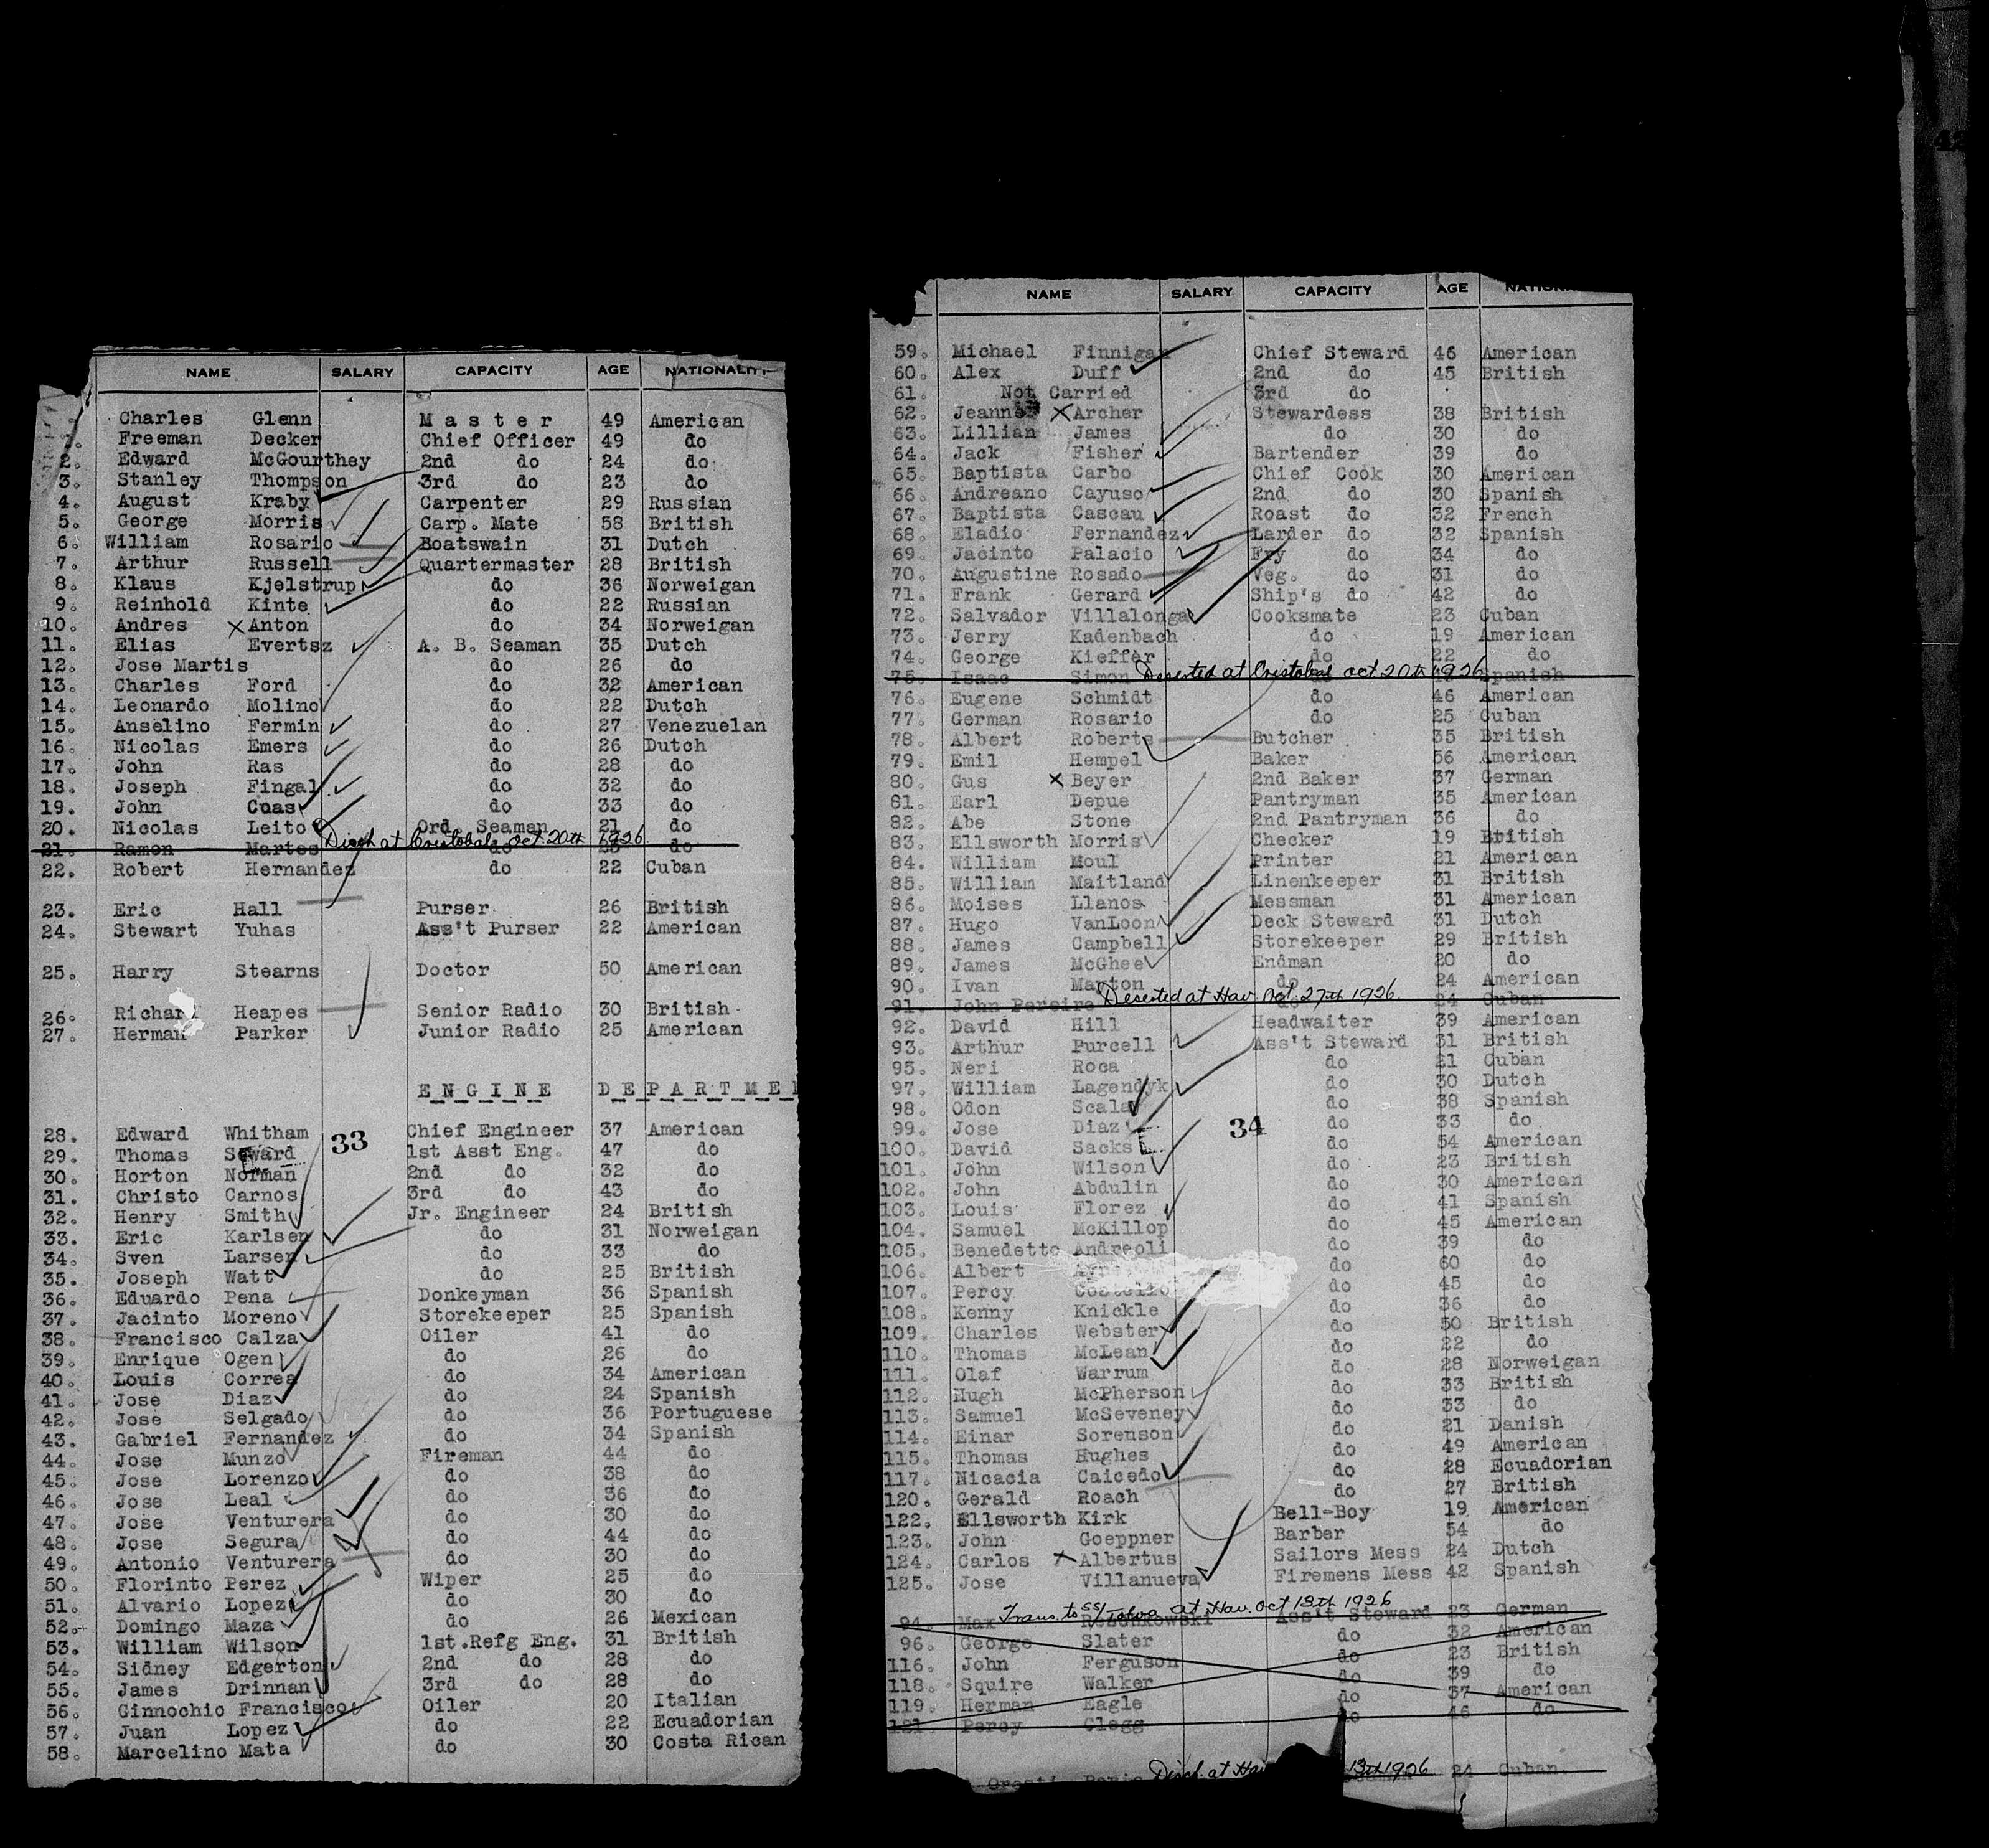 NAME SALARY CAPACITY AGE NATIONALIT
Charles Glenn Master 49 American
Freeman Decker Chief Officer 49 do
2. Edward McGourthey 2nd do 24 do
3. Stanley Thompson 3rd do 23 do
4. August Kraby Carpenter 29 Russian
5. George Morris Carp. Mate 58 British
6. William Rosario Boatswain 31 Dutch
7. Arthur Russell Quartermaster 28 British
8. Klaus Kjelstrup do 36 Norweigan
9. Reinhold Kinte do 22 Russian
10. Andres X Anton do 34 Norweigan
11. Elias Evertsz A. B. Seaman 35 Dutch
12. Jose Martis do 26 do
13. Charles Ford do 32 American
14. Leonardo Molino do 22 Dutch
15. Anselino Fermin do 27 Venezuelan
16. Nicolas Emers do 26 Dutch
17. John Ras do 28 do
18. Joseph Fingal do 32 do
19. John Cuas do 33 do
20. Nicolas Leito Ord. Seaman 21 do
21. Ramon Martes Disch at Cristobal, Oct. 20th 1926 do
22. Robert Hernandez do 22 Cuban
23. Eric Hall Purser 26 British
24. Stewart Yuhas Ass't Purser 22 American
25. Harry Stearns Doctor 50 American
26. Richard Heapes Senior Radio 30 British
27. Herman Parker Junior Radio 25 American
ENGINE DEPARTME
28. Edward Whitham 33 Chief Engineer 37 American
29. Thomas Seward 1st Asst Eng. 47 do
30. Horton Norman 2nd do 32 do
31. Christo Carnos 3rd do 43 do
32. Henry Smith Jr. Engineer 24 British
33. Eric Karlsen do 31 Norweigan
34. Sven Larsen do 33 do
35. Joseph Watt do 25 British
36. Eduardo Pena Donkeyman 36 Spanish
37. Jacinto Moreno Storekeeper 25 Spanish
38. Francisco Calza Oiler 41 do
39. Enrique Ogen do 26 do
40. Louis Correa do 34 American
41. Jose Diaz do 24 Spanish
42. Jose Selgado do 36 Portuguese
43. Gabriel Fernandez do 34 Spanish
44. Jose Munzo Fireman 44 do
45. Jose Lorenzo do 38 do
46. Jose Leal do 36 do
47. Jose Venturera do 30 do
48. Jose Segura do 44 do
49. Antonio Venturera do 30 do
50. Florinto Perez Wiper 25 do
51. Alvario Lopez do 30 do
52. Domingo Maza do 26 Mexican
53. William Wilson 1st.Refg Eng. 31 British
54. Sidney Edgerton 2nd do 28 do
55. James Drinnan 3rd do 28 do
56. Ginnochio Francisco Oiler 20 Italian
57. Juan Lopez do 22 Ecuadorian
58. Marcelino Mata do 30 Costa Rican
NAME SALARY CAPACITY AGE
59. Michael Finnigan Chief Steward 46 American
60. Alex Duff 2nd do 45 British
61. Not Carried 3rd do
62. Jeanne X Archer Stewardess 38 British
63. Lillian James do 30 do
64. Jack Fisher Bartender 39 do
65. Baptista Carbo Chief Cook 30 American
66. Andreano Cayuso 2nd do 30 Spanish
67. Baptista Cascau Roast do 32 French
68. Eladio Fernandez Larder do 32 Spanish
69. Jacinto Palacio Fry do 34 do
70. Augustine Rosado Veg. do 31 do
71. Frank Gerard Ship's do 42 do
72. Salvador Villalonga Cooksmate 23 Cuban
73. Jerry Kadenbach do 19 American
74. George Kieffer do 22 do
75. Isaac Simon Deserted at Cristobal Oct 20th 1926 Spanish
76. Eugene Schmidt do 46 American
77. German Rosario do 25 Cuban
78. Albert Roberts Butcher 35 British
79. Emil Hempel Baker 56 American
80. Gus X Beyer 2nd Baker 37 German
81. Earl Depue Pantryman 35 American
82. Abe Stone 2nd Pantryman 36 do
83. Ellsworth Morris Checker 19 British
84. William Moul Printer 21 American
85. William Maitland Linenkeeper 31 British
86. Moises Llanos Messman 31 American
87. Hugo VanLoon Deck Steward 31 Dutch
88. James Campbell Storekeeper 29 British
89. James McGhee Endman 20 do
90. Ivan Marton do 24 American
91. John Pereira Deserted at Hav. Oct. 27th 1926 24 Cuban
92. David Hill Headwaiter 39 American
93. Arthur Purcell Ass't Steward 31 British
95. Neri Roca do 21 Cuban
97. William Lagendyk do 30 Dutch
98. Odon Scala do 38 Spanish
99. Jose Diaz 34 do 33 do
100. David Sacks do 54 American
101. John Wilson do 23 British
102. John Abdulin do 30 American
103. Louis Florez do 41 Spanish
104. Samuel McKillop do 45 American
105. Benedetto Andreoli do 39 do
106. Albert do 60 do
107. Percy Costello do 45 do
108. Kenny Knickle do 36 do
109. Charles Webster do 50 British
110. Thomas McLean do 22 do
111. Olaf Warrum do 28 Norweigan
112. Hugh McPherson do 33 British
113. Samuel McSeveney do 33 do
114. Einar Sorenson do 21 Danish
115. Thomas Hughes do 49 American
117. Nicacia Caicedo do 28 Ecuadorian
120. Gerald Roach do 27 British
122. Ellsworth Kirk Bell-Boy 19 American
123. John Goeppner Barber 54 do
124. Carlos X Albertus Sailors Mess 24 Dutch
125. Jose Villanueva Firemens Mess 42 Spanish
Trans. to SS/ at Hav. Oct 13th 1926
94. Max Ass't Steward 23 German
96. George Slater do 32 American
116. John Ferguson do 23 British
118. Squire Walker do 39 do
119. Herman Eagle do 37 American
121. Percy Clegg do 46 do
Disch. at Hav 13th 1926 24 Cuban